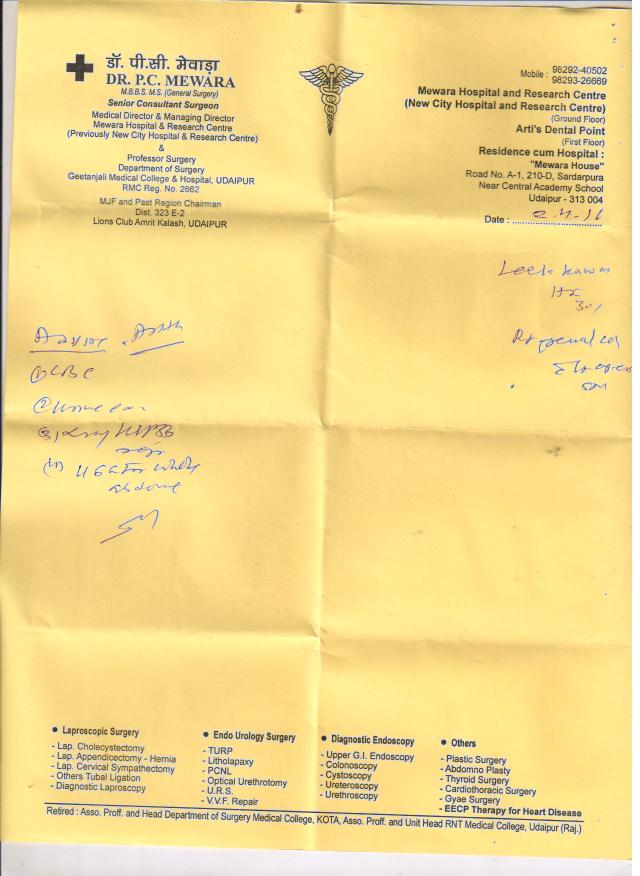 डॉ. पी.सी. मेवाड़ा
DR. P.C. MEWARA
M.B.B.S. M.S. (General Surgery)
Senior Consultant Surgeon
Medical Director & Managing Director
Mewara Hospital & Research Centre
(Previously New City Hospital & Research Centre)
&
Professor Surgery
Department of Surgery
Geetanjali Medical College & Hospital, UDAIPUR
RMC Reg. No. 2662
MJF and Past Region Chairman
Dist. 323 E-2
Lions Club Amrit Kalash, UDAIPUR
Mobile : 98292-40502
98293-26669
Mewara Hospital and Research Centre
(New City Hospital and Research Centre)
(Ground Floor)
Arti's Dental Point
(First Floor)
Residence cum Hospital :
"Mewara House"
Road No. A-1, 210-D, Sardarpura
Near Central Academy School
Udaipur - 313 004
Date :
① CBC
whole
● Laproscopic Surgery
- Lap. Cholecystectomy
- Lap. Appendicectomy - Hernia
- Lap. Cervical Sympathectomy
- Others Tubal Ligation
- Diagnostic Laproscopy
● Endo Urology Surgery
- TURP
- Litholapaxy
- PCNL
- Optical Urethrotomy
- U.R.S.
- V.V.F. Repair
● Diagnostic Endoscopy
- Upper G.I. Endoscopy
- Colonoscopy
- Cystoscopy
- Ureteroscopy
- Urethroscopy
● Others
- Plastic Surgery
- Abdomno Plasty
- Thyroid Surgery
- Cardiothoracic Surgery
- Gyae Surgery
- EECP Therapy for Heart Disease
Retired : Asso. Proff. and Head Department of Surgery Medical College, KOTA, Asso. Proff. and Unit Head RNT Medical College, Udaipur (Raj.)